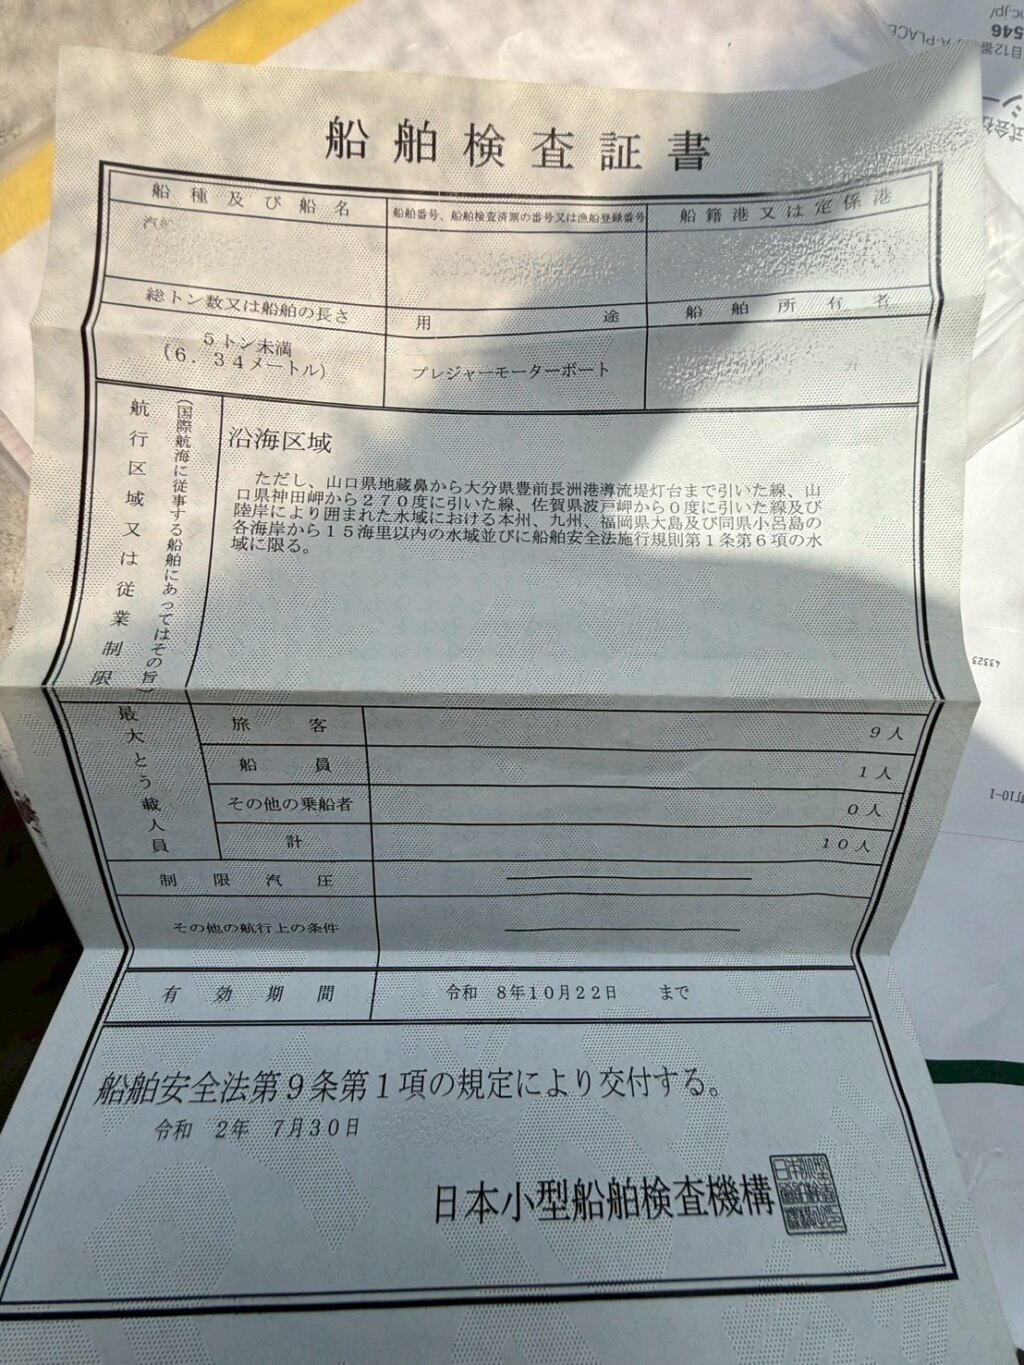 船舶検査証書
船種及び船名
船舶番号、船舶検査済票の番号又は漁船登録番号
船籍港又は定係港
汽船
総トン数又は船舶の長さ
用途
船舶所有者
5トン未満
(6.34メートル)
プレジャーモーターボート
航行区域又は従業制限
(国際航海に従事する船舶にあってはその旨)
沿海区域
ただし、山口県地蔵鼻から大分県豊前長洲港導流堤灯台まで引いた線、山
口県神田岬から270度に引いた線、佐賀県波戸岬から0度に引いた線及び
陸岸により囲まれた水域における本州、九州、福岡県大島及び同県小呂島の
各海岸から15海里以内の水域並びに船舶安全法施行規則第1条第6項の水
域に限る。
最大とう載人員
旅客
9人
船員
1人
その他の乗船者
0人
計
10人
制限汽圧
その他の航行上の条件
有効期間
令和 8年10月22日 まで
船舶安全法第9条第1項の規定により交付する。
令和 2年 7月30日
日本小型船舶検査機構
43323